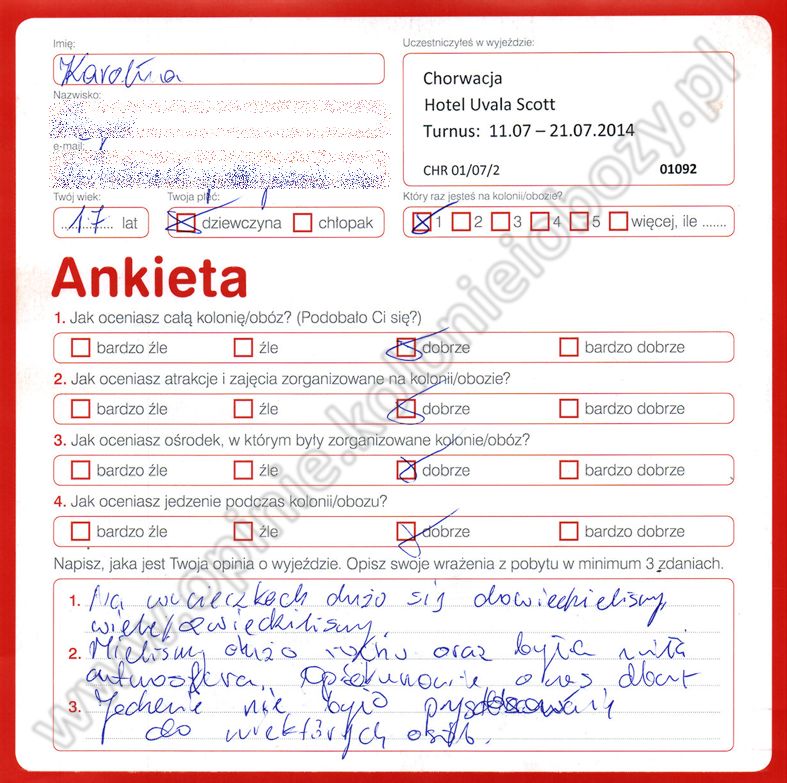 Imię:
Uczestniczyłeś w wyjeździe:
Karolina
Chorwacja
Hotel Uvala Scott
Turnus: 11.07 – 21.07.2014
CHR 01/07/2 01092
Nazwisko:
e-mail:
Twój wiek:
Twoja płeć:
Który raz jesteś na kolonii/obozie?
17 lat
dziewczyna chłopak
1 2 3 4 5 więcej, ile .......
Ankieta
1. Jak oceniasz całą kolonię/obóz? (Podobało Ci się?)
bardzo źle źle dobrze bardzo dobrze
2. Jak oceniasz atrakcje i zajęcia zorganizowane na kolonii/obozie?
bardzo źle źle dobrze bardzo dobrze
3. Jak oceniasz ośrodek, w którym były zorganizowane kolonie/obóz?
bardzo źle źle dobrze bardzo dobrze
4. Jak oceniasz jedzenie podczas kolonii/obozu?
bardzo źle źle dobrze bardzo dobrze
Napisz, jaka jest Twoja opinia o wyjeździe. Opisz swoje wrażenia z pobytu w minimum 3 zdaniach.
1. Na wycieczkach dużo się dowiedzieliśmy,
wiele zwiedziliśmy.
2. Mieliśmy dużo ruchu oraz była miła
atmosfera. Opiekunowie o nas dbali
3. Jedzenie nie było
do niektórych osób.
www.opinie.kolonieiobozy.pl